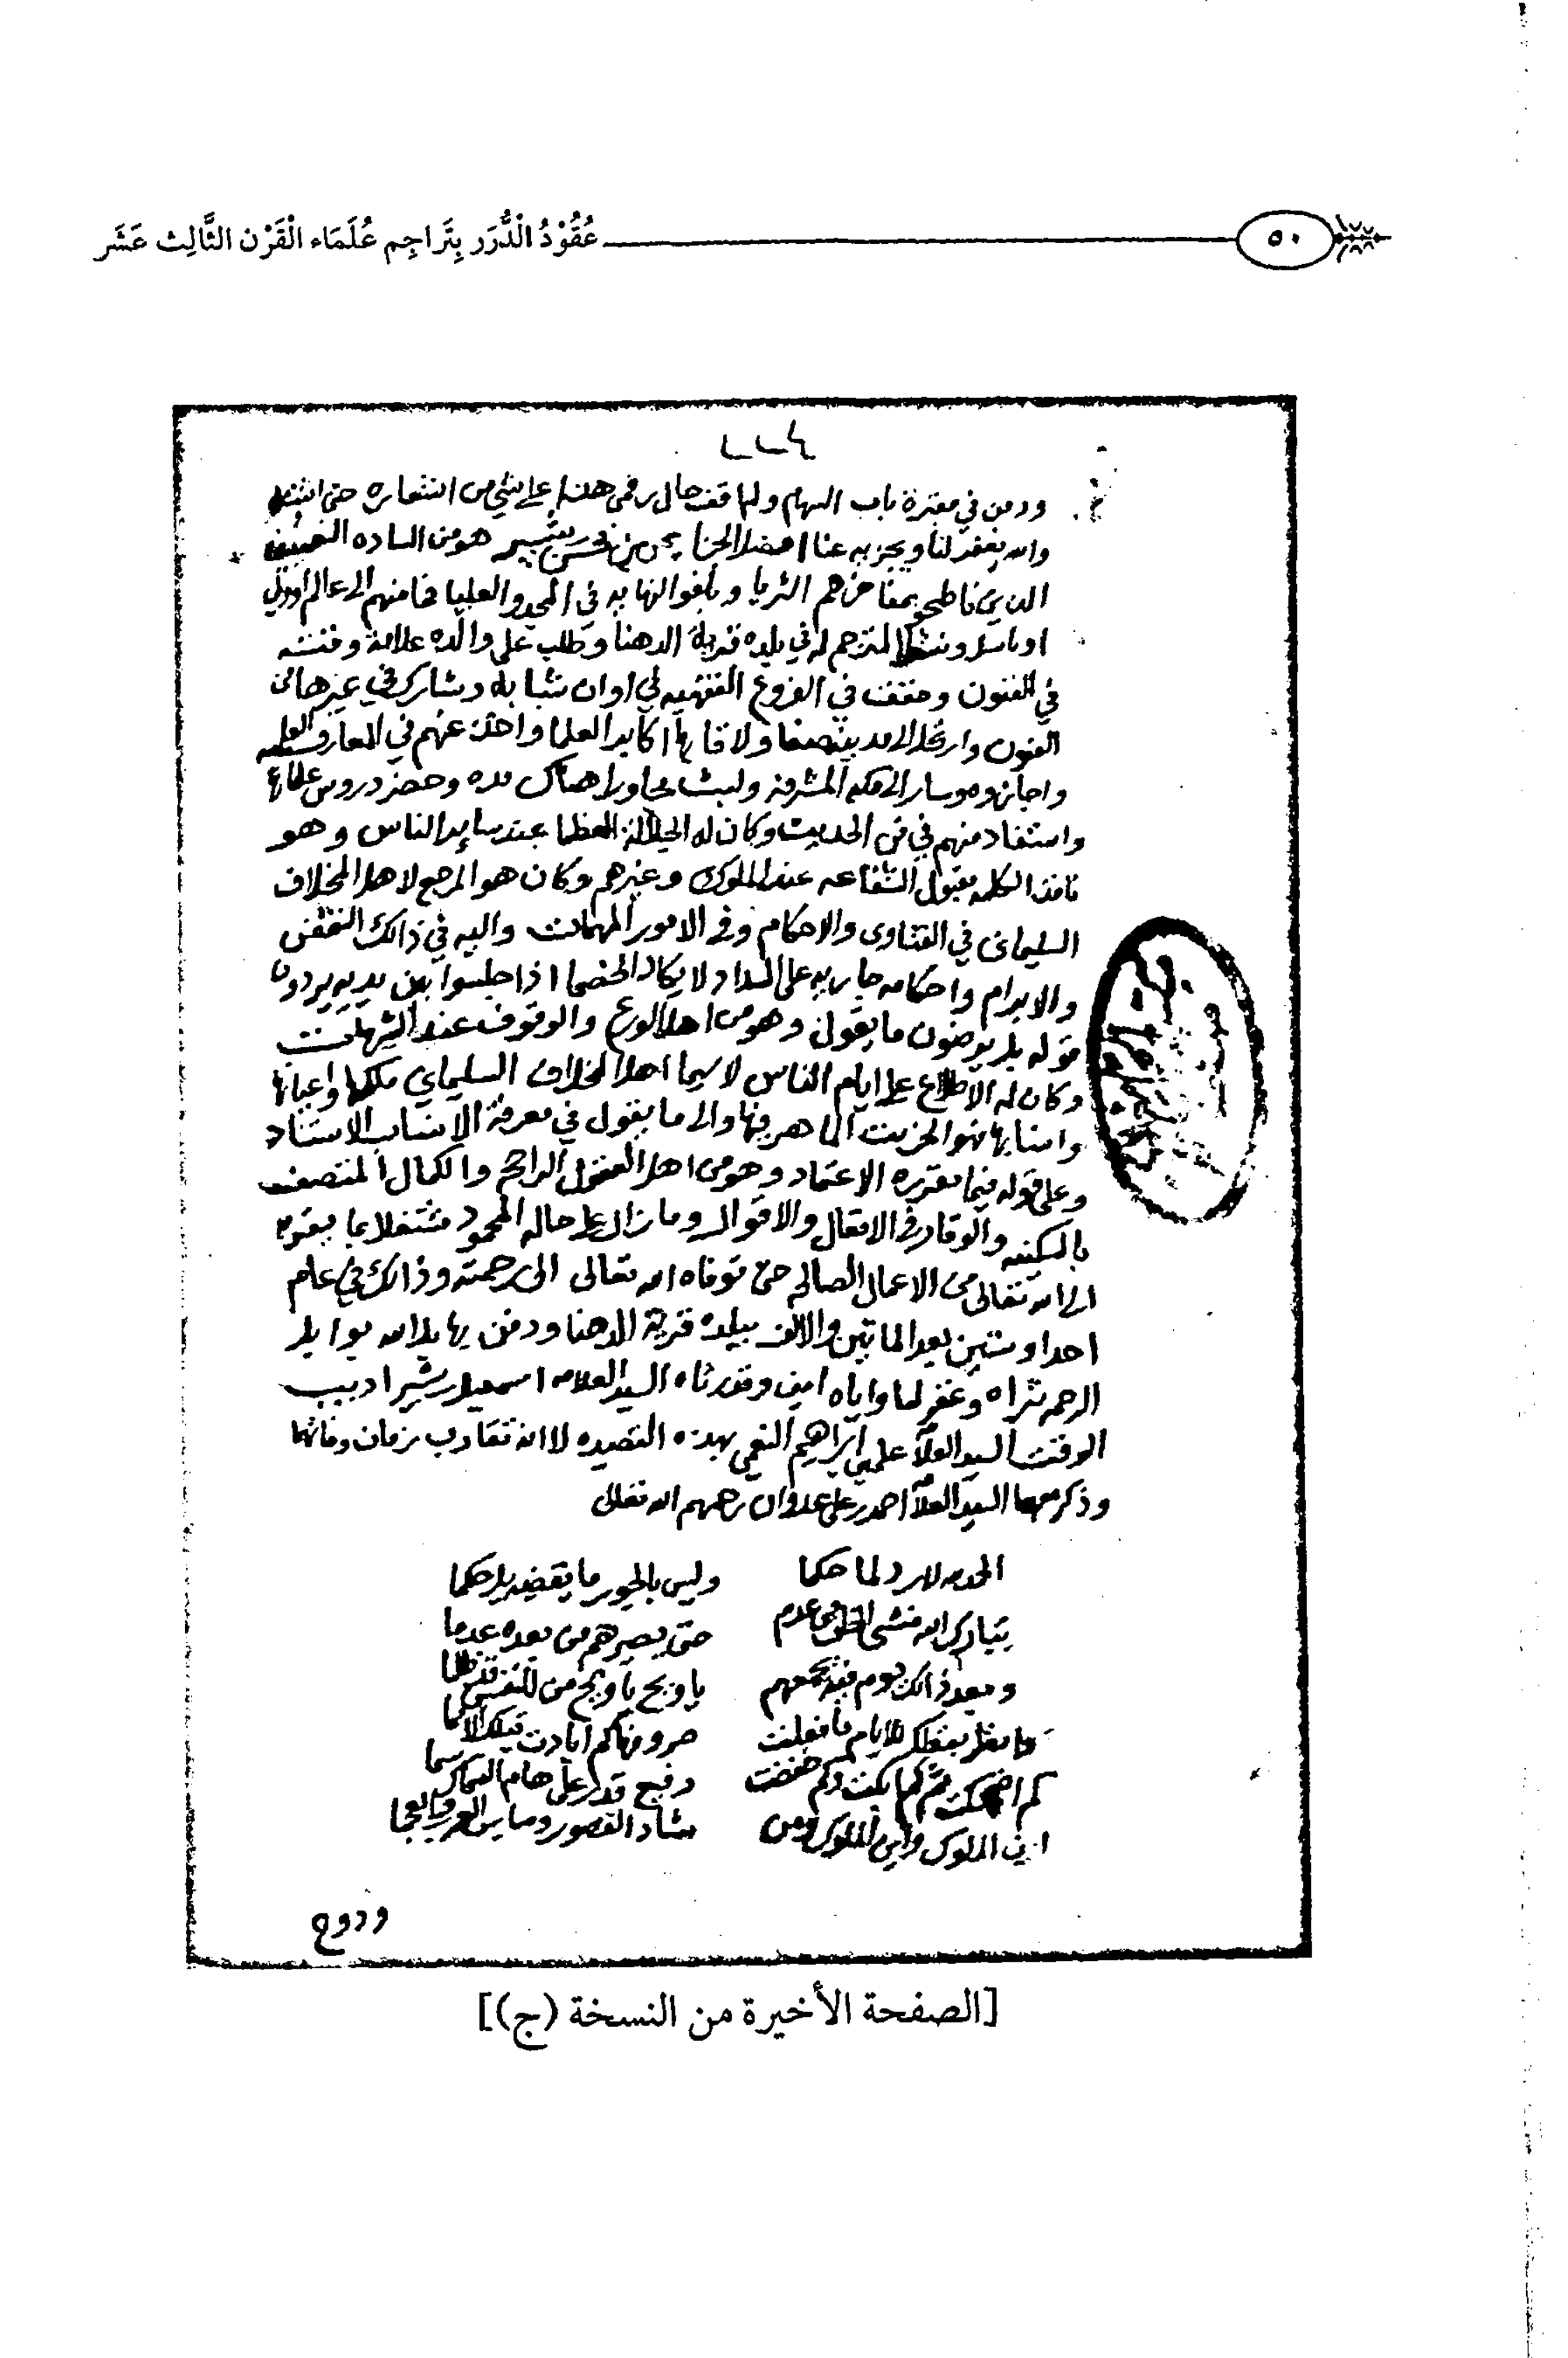 عُقُوْدُ الْدُّرَر بِتَرَاجِم عُلَمَاء الْقَرْن الثَّالِث عَشَر
٥٠
ودفن في مقبرة باب السهام ولم اقف حال رقمي هذا على شي من اشعاره حتى اثبته
والله يغفر لنا ويجزيه عنا افضل الجزا هو من الساده
الدين ناطحو بمفاخرهم الثريا وبلغوا النهايه في المجد والعليا فما منهم الا عالم اوولي
او ناسك ونشا المترجم له في بلده قرية الدهنا وطلب على والده علامة وقته
في الفنون وحقق في الفروع الفقهيه في اوان شبابه وشارك في غيرها من
الفنون وارتحل الا مدينة صنعا ولاقا بها اكابر العلما واخذ عنهم في المعارف العلميه
واجازوه وسار الى مكه المشرفه ولبث مجاورا هناك مده وحضر دروس علمائها
واستفاد منهم في فن الحديث وكان له الجلالة العظما عند ساير الناس وهو
نافذ الكلمه مقبول الشفاعه عند الملوك وغيرهم وكان هو المرجع لاهل المخلاف
السليماني في الفتاوى والاحكام وفي الامور المهمات واليه في ذالك النقض
والابرام واحكامه جاريه على السداد لا يكاد الخصما اذا جلسوا بين يديه يردون
قوله بل يرضون ما يقول وهو من اهل الورع والوقوف عند الشبهات
وكان له الاطلاع على ايام الناس لا سيما اهل المخلاف السليماني ملكها واعيانها
وانسابها فهو الخريت الماهر فيها والى ما يقول في معرفة الانساب الاستناد
وعلى قوله فيما يقرره الاعتماد وهو من اهل العقول الراجح والكمال المتصف
بالسكينه والوقار في الافعال والاقوال وما زال على حاله المحمود مشتغلا بما يقربه
الى الله تعالى من الاعمال الصالح حتى توفاه الله تعالى الى رحمته وذالك في عام
احدا وستين بعد الماتين والالف ببلده قرية الدهنا ودفن بها بل الله بوابل
الرحمه ثراه وغفر لنا واياه امين وقد رثاه السيد العلامه اسمعيل بشير اديب
الوقت السيد العلا علي بن ابراهيم النعمي بهذه القصيده لاانه تقارب زمان وفاتهما
وذكر معهما السيد العلا احمد بن علي عدوان رحمهم الله تعالى
الحمد لله لا رد لما حكما وليس بالجور ما يقضيه بل حكما
تبارك الله منشي الخلق من عدم حتى يصيرهم من بعده عدما
وبعد ذالك يوم فيه يجمعهم يا ويح يا ويح من للنفس قد ظلما
بعقلك للايام ما فعلت صروفها كم ابادت قبلك الامما
كم اضحكت ثم كم ابكت وكم خفضت رفيع قدر على هام السماك سما
اين الملوك وابن الملوك ومن شاد القصور وساس العرب والعجما
ودوح
[الصفحة الأخيرة من النسخة (ج)]